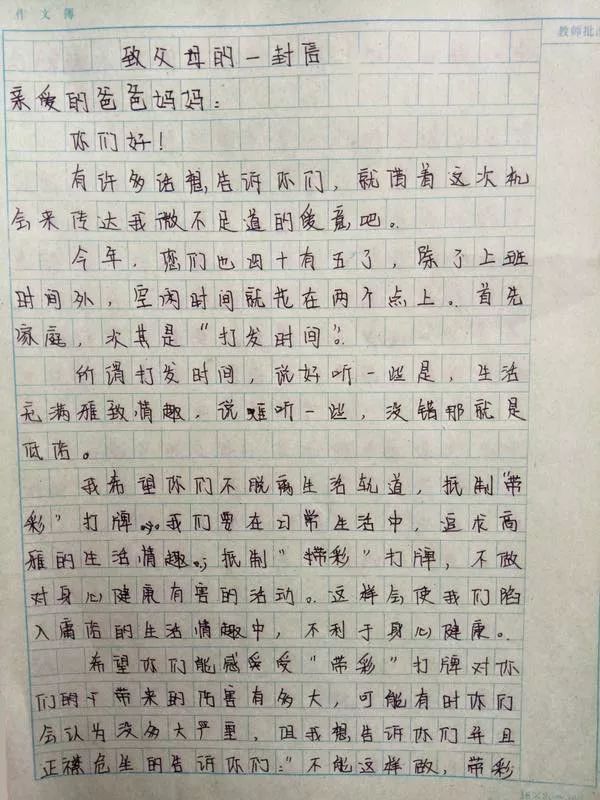 作文簿
教师批
致父母的一封信
亲爱的爸爸妈妈：
你们好！
有许多话想告诉你们，就借着这次机
会来传达我微不足道的爱意吧。
今年，您们也四十有五了，除了上班
时间外，空闲时间就花在两个点上。首先
家庭，次其是“打发时间”。
所谓打发时间，说好听一些是，生活
充满雅致情趣，说难听一些，没错那就是
低俗。
我希望你们不脱离生活轨道，抵制“带
彩”打牌。我们要在日常生活中，追求高
雅的生活情趣。抵制“带彩”打牌，不做
对身心健康有害的活动。这样会使我们陷
入庸俗的生活情趣中，不利于身心健康。
希望你们能感受受“带彩”打牌对你
们的个带来的伤害有多大，可能有时你们
会认为没多大严重，但我想告诉你们并且
正襟危坐的告诉你们：“不能这样做，带彩